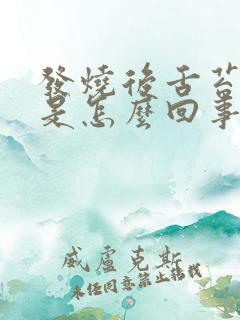 發燒後舌苔
是怎麼回事
威盧克斯
未经同意禁止转载